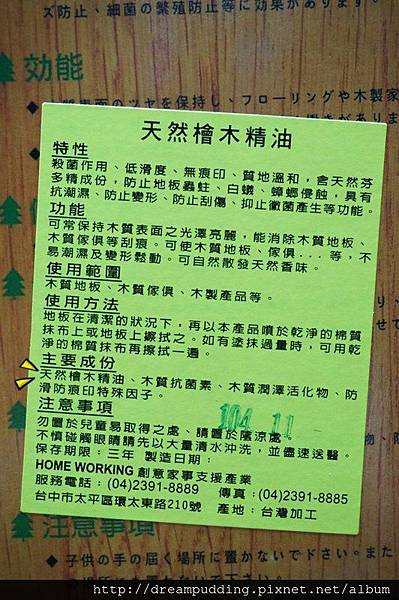 ズ防止、細菌の繁殖防止等に効果があります。
効能
のツヤを保持し、フローリングや木製家
天然檜木精油
特性
殺菌作用、低滑度、無痕印、質地溫和，含天然芬
多精成份，防止地板蟲蛀、白蟻、蟑螂侵蝕，具有
抗潮濕、防止變形、防止刮傷、抑止黴菌產生等功能。
功能
可常保持木質表面之光澤亮麗，能消除木質地板、
木質傢俱等刮痕。可使木質地板、傢俱...等，不
易潮濕及變形鬆動。可自然散發天然香味。
使用範圍
木質地板、木質傢俱、木製產品等。
使用方法
地板在清潔的狀況下，再以本產品噴於乾淨的棉質
抹布上或地板上擦拭之。如有塗抹過量時，可用乾
淨的棉質抹布再擦拭一遍。
主要成份
天然檜木精油、木質抗菌素、木質潤澤活化物、防
滑防痕印特殊因子。
注意事項
勿置於兒童易取得之處、請置於蔭涼處
不慎碰觸眼睛請先以大量清水沖洗，並儘速送醫。
保存期限：三年 製造日期：
104.11
HOME WORKING 創意家事支援產業
服務電話：(04)2391-8889 傳真：(04)2391-8885
台中市太平區環太東路210號 產地：台灣加工
注意事項
◆ 子供の手の届く場所に置かないで下さい。また
場所にも置かないで下さい。
http://dreampudding.pixnet.net/album